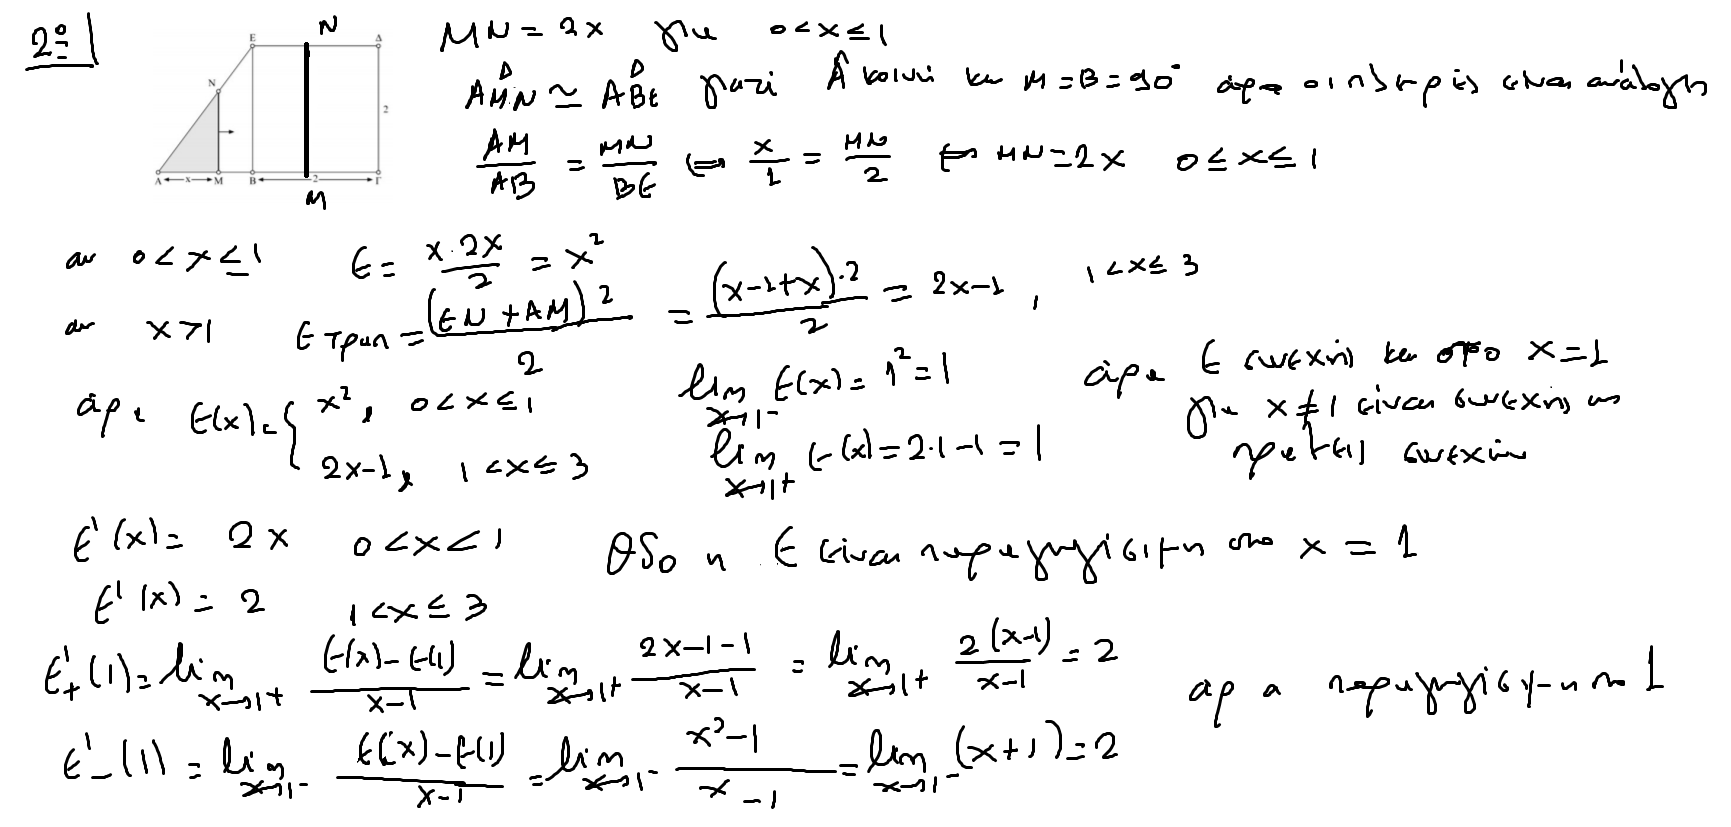 2º
E N Δ
N 2
A x M B 2 Γ
M
MN = 2x για 0<x≤1
AMN ≃ ABE γιατί Â κοινή και M=B=90° άρα οι πλευρές είναι ανάλογες
AM/AB = MN/BE ⇔ x/1 = MN/2 ⇔ MN=2x 0≤x≤1
αν 0<x≤1 E= x·2x/2 = x²
αν x>1 Eτραπ = (EN+AM)2/2 = (x-1+x)·2/2 = 2x-1, 1<x≤3
άρα E(x)={ x², 0<x≤1
2x-1, 1<x≤3
lim x→1⁻ E(x)=1²=1
lim x→1⁺ E(x)=2·1-1=1
άρα E συνεχής και στο x=1
για x≠1 είναι συνεχής ως
πράξεις συνεχών
E'(x)= 2x 0<x<1 ΘΔο η E είναι παραγωγίσιμη στο x=1
E'(x)= 2 1<x≤3
E'₊(1)= lim x→1⁺ E(x)-E(1)/x-1 = lim x→1⁺ 2x-1-1/x-1 = lim x→1⁺ 2(x-1)/x-1 = 2
άρα παραγωγίσιμη στο 1
E'₋(1) = lim x→1⁻ E(x)-E(1)/x-1 = lim x→1⁻ x²-1/x-1 = lim x→1⁻ (x+1)=2